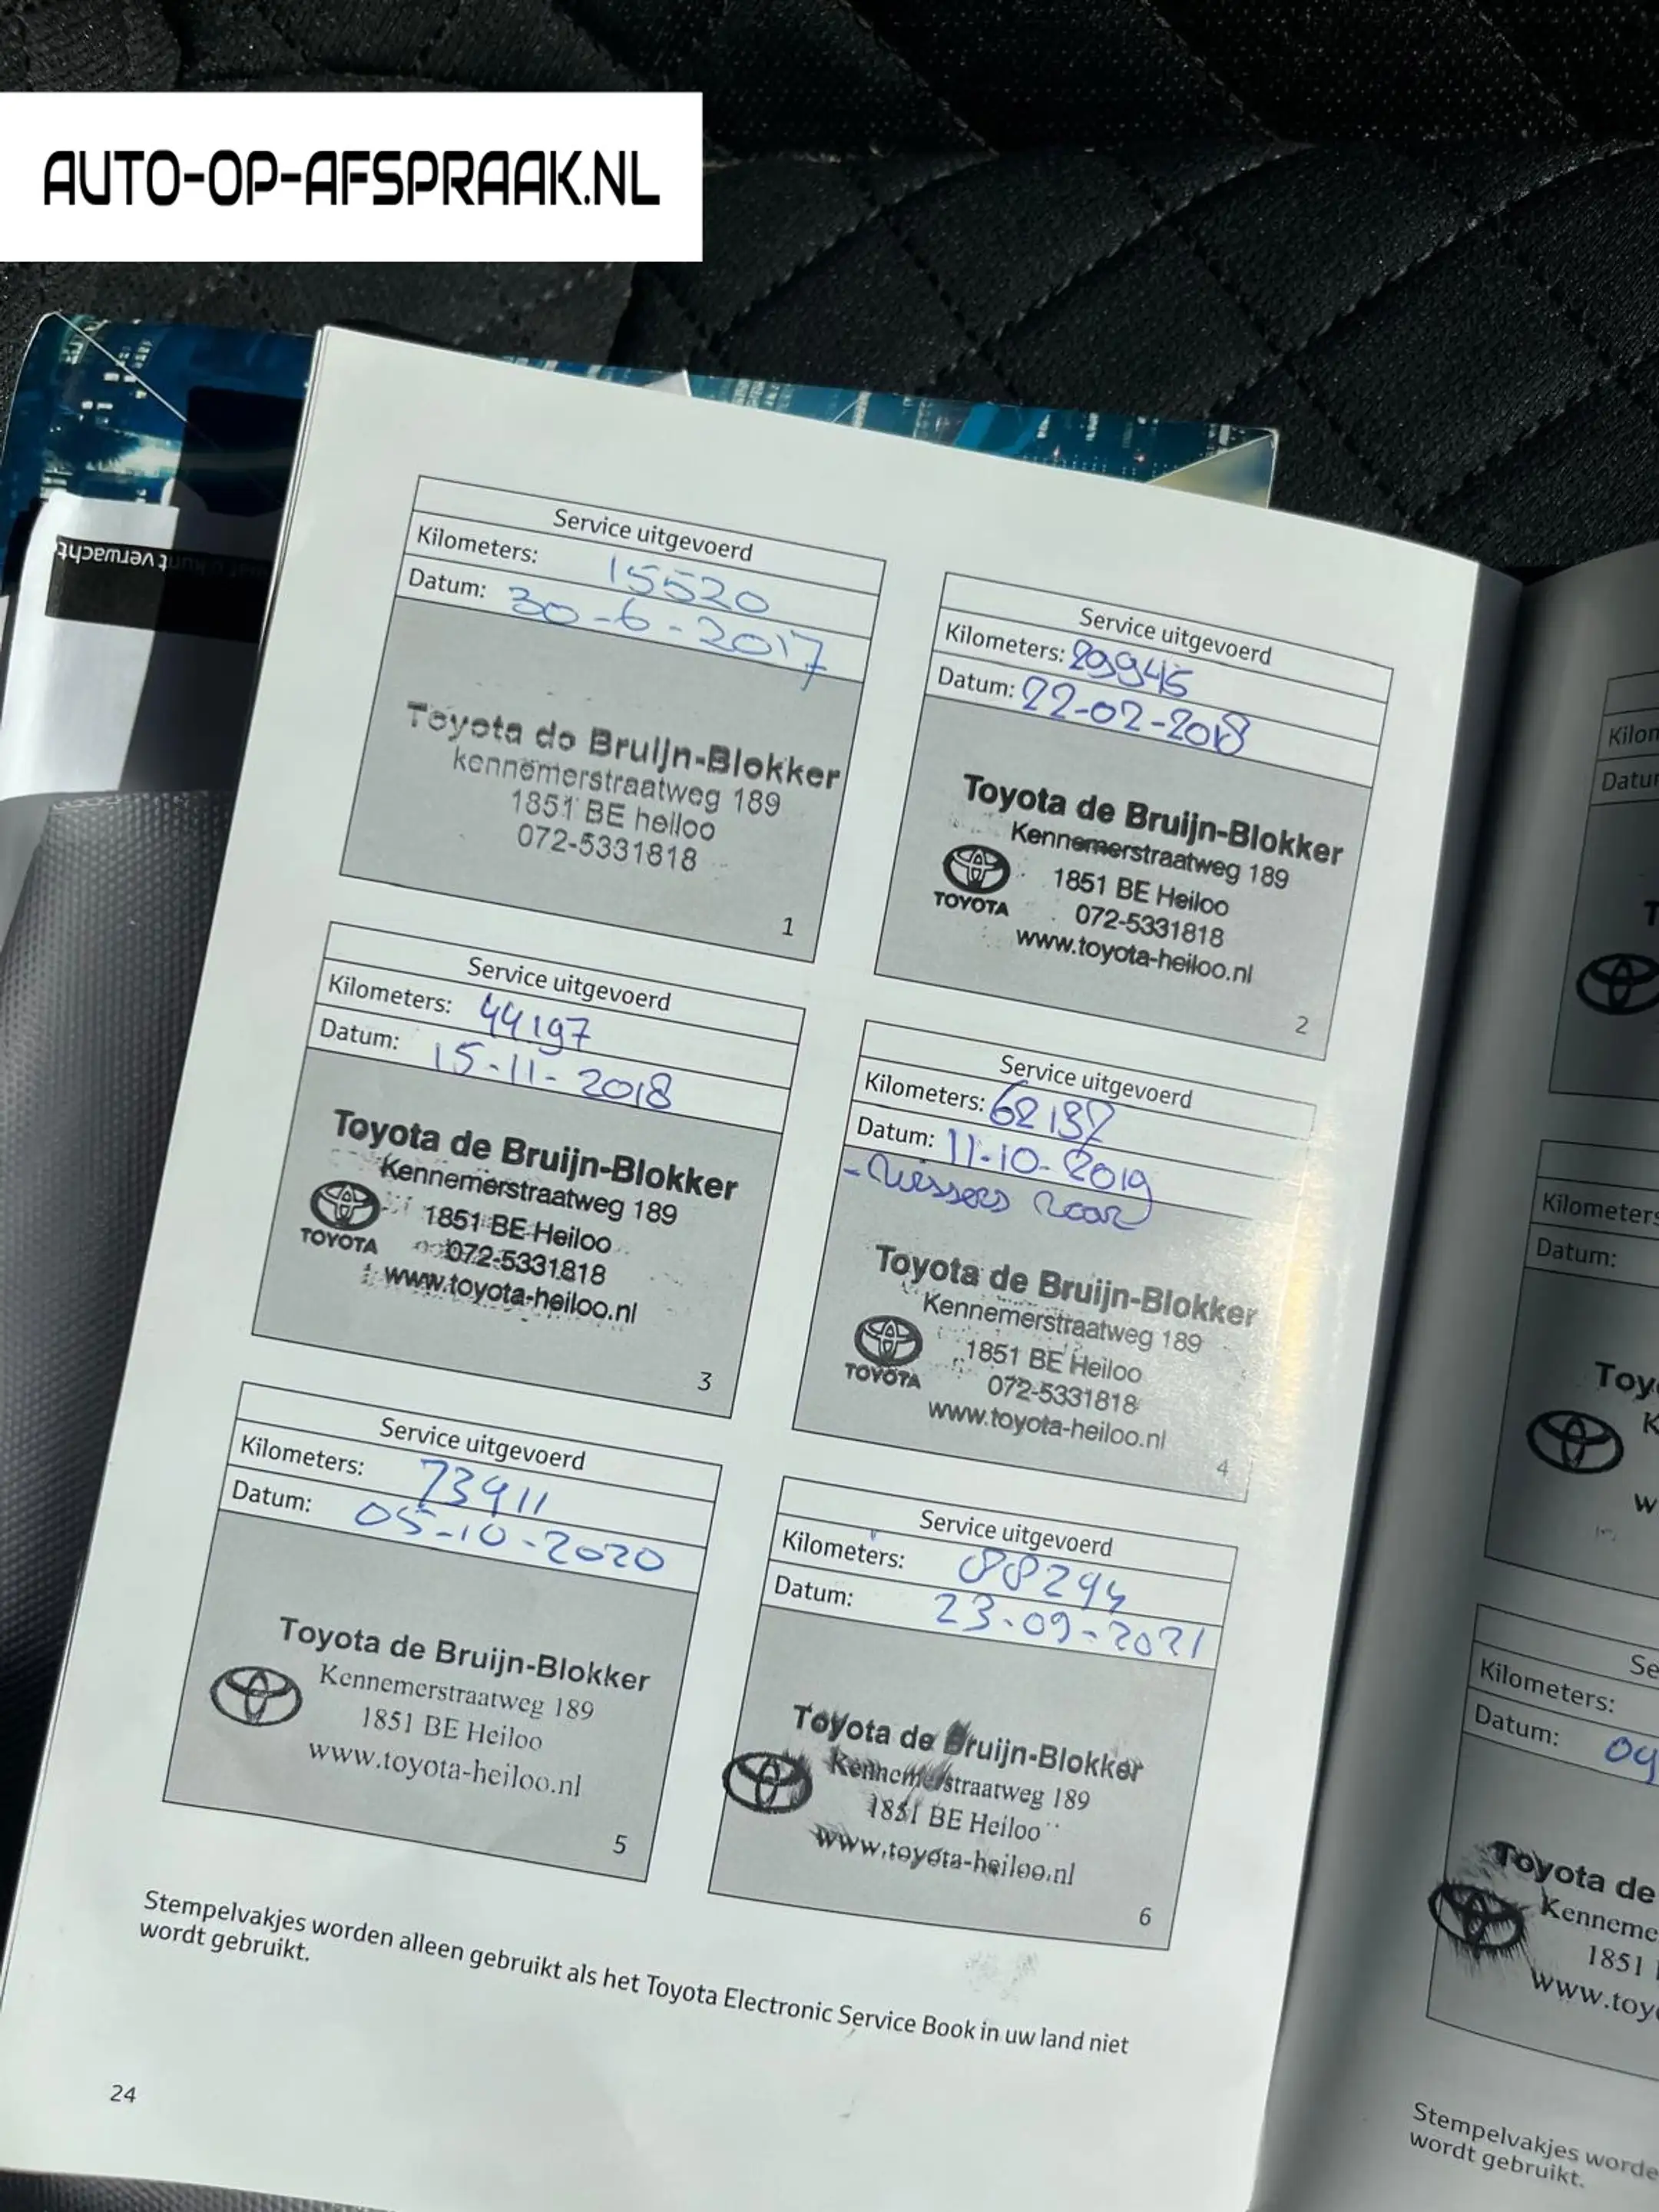 AUTO-OP-AFSPRAAK.NL
kunt verwacht
Service uitgevoerd
Kilometers: 15520
Datum: 30-6-2017
Toyota de Bruijn-Blokker
kennemerstraatweg 189
1851 BE heiloo
072-5331818
1
Service uitgevoerd
Kilometers: 29945
Datum: 22-02-2018
Toyota de Bruijn-Blokker
Kennemerstraatweg 189
1851 BE Heiloo
072-5331818
www.toyota-heiloo.nl
TOYOTA
2
Service uitgevoerd
Kilometers: 44197
Datum: 15-11-2018
Toyota de Bruijn-Blokker
Kennemerstraatweg 189
1851 BE Heiloo
072-5331818
www.toyota-heiloo.nl
TOYOTA
3
Service uitgevoerd
Kilometers: 62132
Datum: 11-10-2019
Toyota de Bruijn-Blokker
Kennemerstraatweg 189
1851 BE Heiloo
072-5331818
www.toyota-heiloo.nl
TOYOTA
4
Service uitgevoerd
Kilometers: 73911
Datum: 05-10-2020
Toyota de Bruijn-Blokker
Kennemerstraatweg 189
1851 BE Heiloo
www.toyota-heiloo.nl
5
Service uitgevoerd
Kilometers: 88294
Datum: 23-09-2021
Toyota de Bruijn-Blokker
Kennemerstraatweg 189
1851 BE Heiloo
www.toyota-heiloo.nl
6
Stempelvakjes worden alleen gebruikt als het Toyota Electronic Service Book in uw land niet
wordt gebruikt.
24
Kilom
Datu
T
Kilometers
Datum:
Toy
K
w
Se
Kilometers:
Datum: 09
Toyota de
Kenneme
1851
www.toy
Stempelvakjes worde
wordt gebruikt.